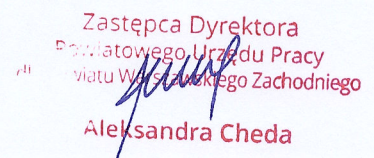 Zastępca Dyrektora
Powiatowego Urzędu Pracy
Warszawskiego Zachodniego
Aleksandra Cheda